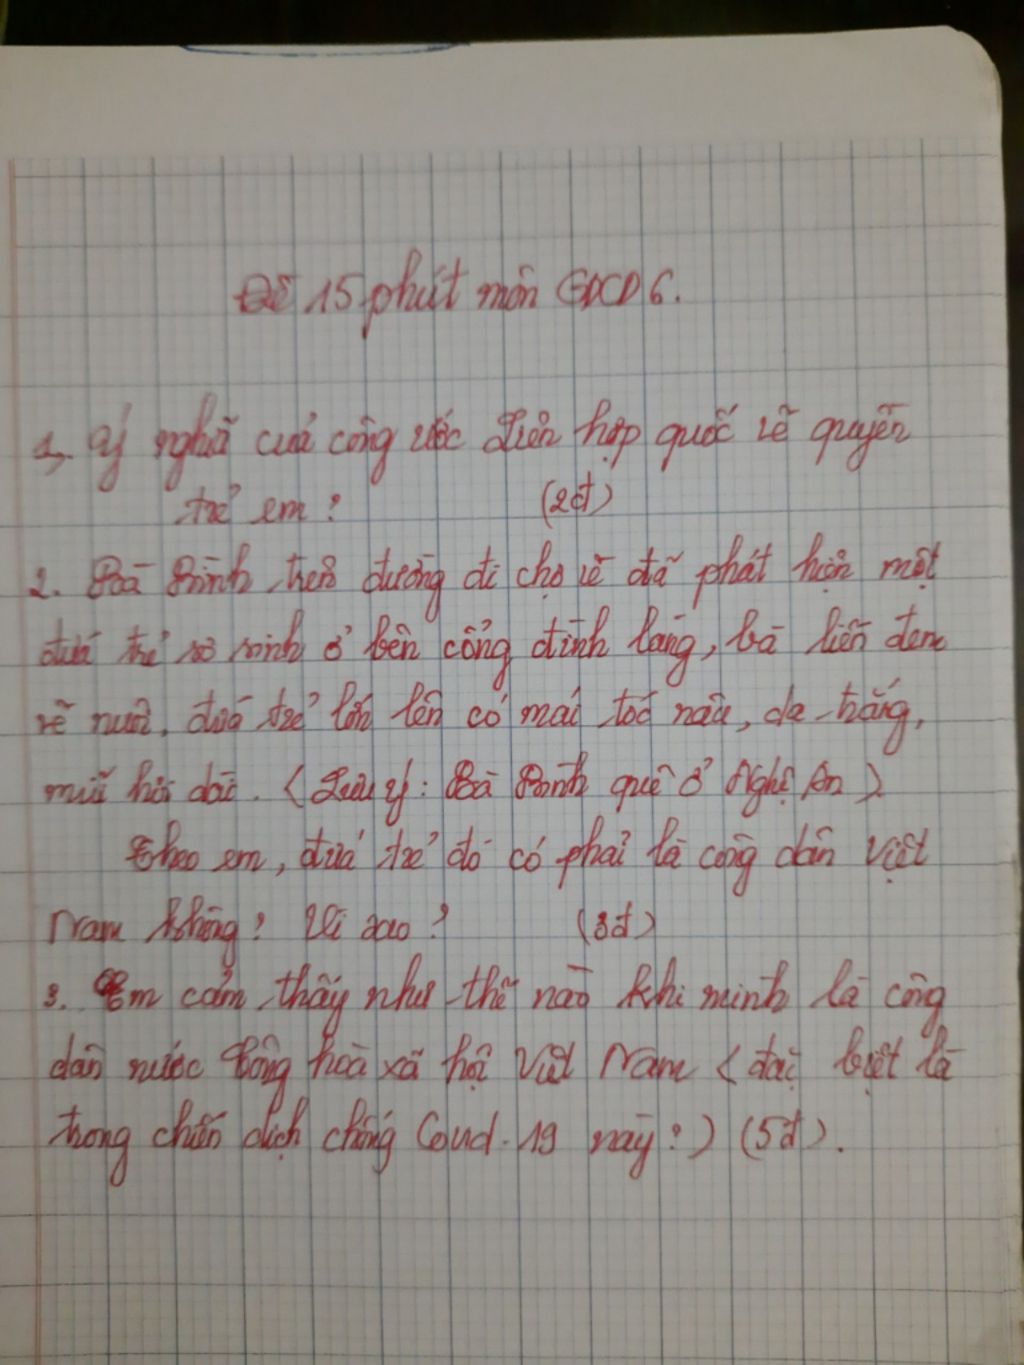 Đề 15 phút môn GDCD 6.
1, Ý nghĩa của công ước Liên hợp quốc về quyền
trẻ em? (2đ)
2. Bà Bình trên đường đi chợ về đã phát hiện một
đứa trẻ sơ sinh ở bên cổng đình làng, bà liền đem
về nuôi, đứa trẻ lớn lên có mái tóc nâu, da trắng,
mũi hơi dài. (Lưu ý: Bà Bình quê ở Nghệ An)
Theo em, đứa trẻ đó có phải là công dân Việt
Nam không? Vì sao? (3đ)
3. Em cảm thấy như thế nào khi mình là công
dân nước Cộng hoà xã hội Việt Nam (đặc biệt là
trong chiến dịch chống Covid-19 này?) (5đ).